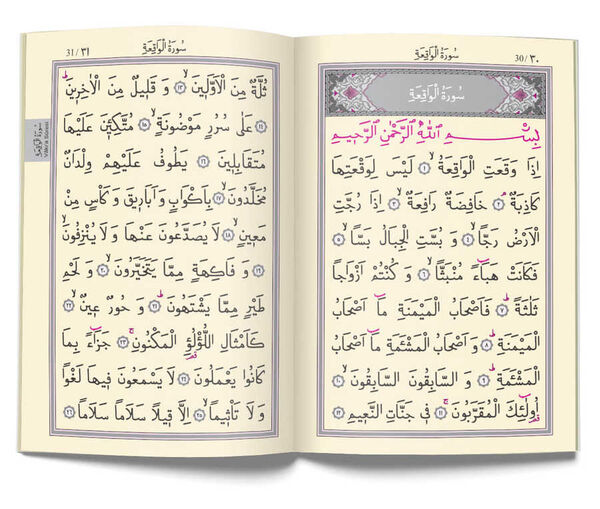 سُورَةُ الْوَاقِعَةِ
30/٣٠
سُورَةُ الْوَاقِعَةِ
بِسْــمِ اللّٰهِ الرَّحْمٰنِ الرَّحٖيمِ
اِذَا وَقَعَتِ الْوَاقِعَةُۙ ﴿١﴾ لَيْسَ لِوَقْعَتِهَا
كَاذِبَةٌۢ ﴿٢﴾ خَافِضَةٌ رَافِعَةٌۙ ﴿٣﴾ اِذَا رُجَّتِ
الْاَرْضُ رَجًّاۙ ﴿٤﴾ وَ بُسَّتِ الْجِبَالُ بَسًّاۙ ﴿٥﴾
فَكَانَتْ هَبَٓاءً مُنْبَثًّاۙ ﴿٦﴾ وَ كُنْتُمْ اَزْوَاجًا
ثَلٰثَةًۜ ﴿٧﴾ فَاَصْحَابُ الْمَيْمَنَةِ مَٓا اَصْحَابُ
الْمَيْمَنَةِۜ ﴿٨﴾ وَ اَصْحَابُ الْمَشْـَٔمَةِ مَٓا اَصْحَابُ
الْمَشْـَٔمَةِۜ ﴿٩﴾ وَ السَّابِقُونَ السَّابِقُونَۙ ﴿١٠﴾
اُو۬لٰٓئِكَ الْمُقَرَّبُونَۚ ﴿١١﴾ فٖي جَنَّاتِ النَّعٖيمِ ﴿١٢﴾
31/٣١
سُورَةُ الْوَاقِعَةِ
سُورَةُ الْوَاقِعَةِ
Vâkı'a Sûresi
ثُلَّةٌ مِنَ الْاَوَّلٖينَۙ ﴿١٣﴾ وَ قَلٖيلٌ مِنَ الْاٰخِرٖينَۜ
﴿١٤﴾ عَلٰى سُرُرٍ مَوْضُونَةٍۙ ﴿١٥﴾ مُتَّكِـٖٔينَ عَلَيْهَا
مُتَقَابِلٖينَ ﴿١٦﴾ يَطُوفُ عَلَيْهِمْ وِلْدَانٌ
مُخَلَّدُونَۙ ﴿١٧﴾ بِاَكْوَابٍ وَ اَبَارٖيقَ وَ كَاْسٍ مِنْ
مَعٖينٍۙ ﴿١٨﴾ لَا يُصَدَّعُونَ عَنْهَا وَ لَا يُنْزِفُونَۙ
﴿١٩﴾ وَ فَاكِهَةٍ مِمَّا يَتَخَيَّرُونَۙ ﴿٢٠﴾ وَ لَحْمِ
طَيْرٍ مِمَّا يَشْتَهُونَۜ ﴿٢١﴾ وَ حُورٌ عٖينٌۙ ﴿٢٢﴾
كَاَمْثَالِ اللُّؤْلُؤِ الْمَكْنُونِۚ ﴿٢٣﴾ جَزَٓاءً بِمَا
كَانُوا يَعْمَلُونَ ﴿٢٤﴾ لَا يَسْمَعُونَ فٖيهَا لَغْوًا
وَ لَا تَاْثٖيمًاۙ ﴿٢٥﴾ اِلَّا قٖيلًا سَلَامًا سَلَامًا ﴿٢٦﴾